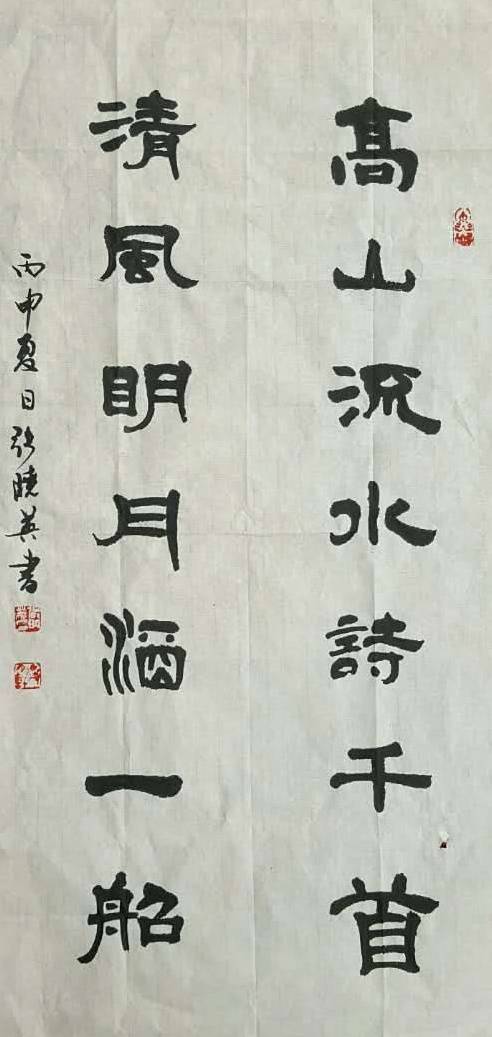 高山流水詩千首
清風明月酒一船
丙申夏日張曉英書